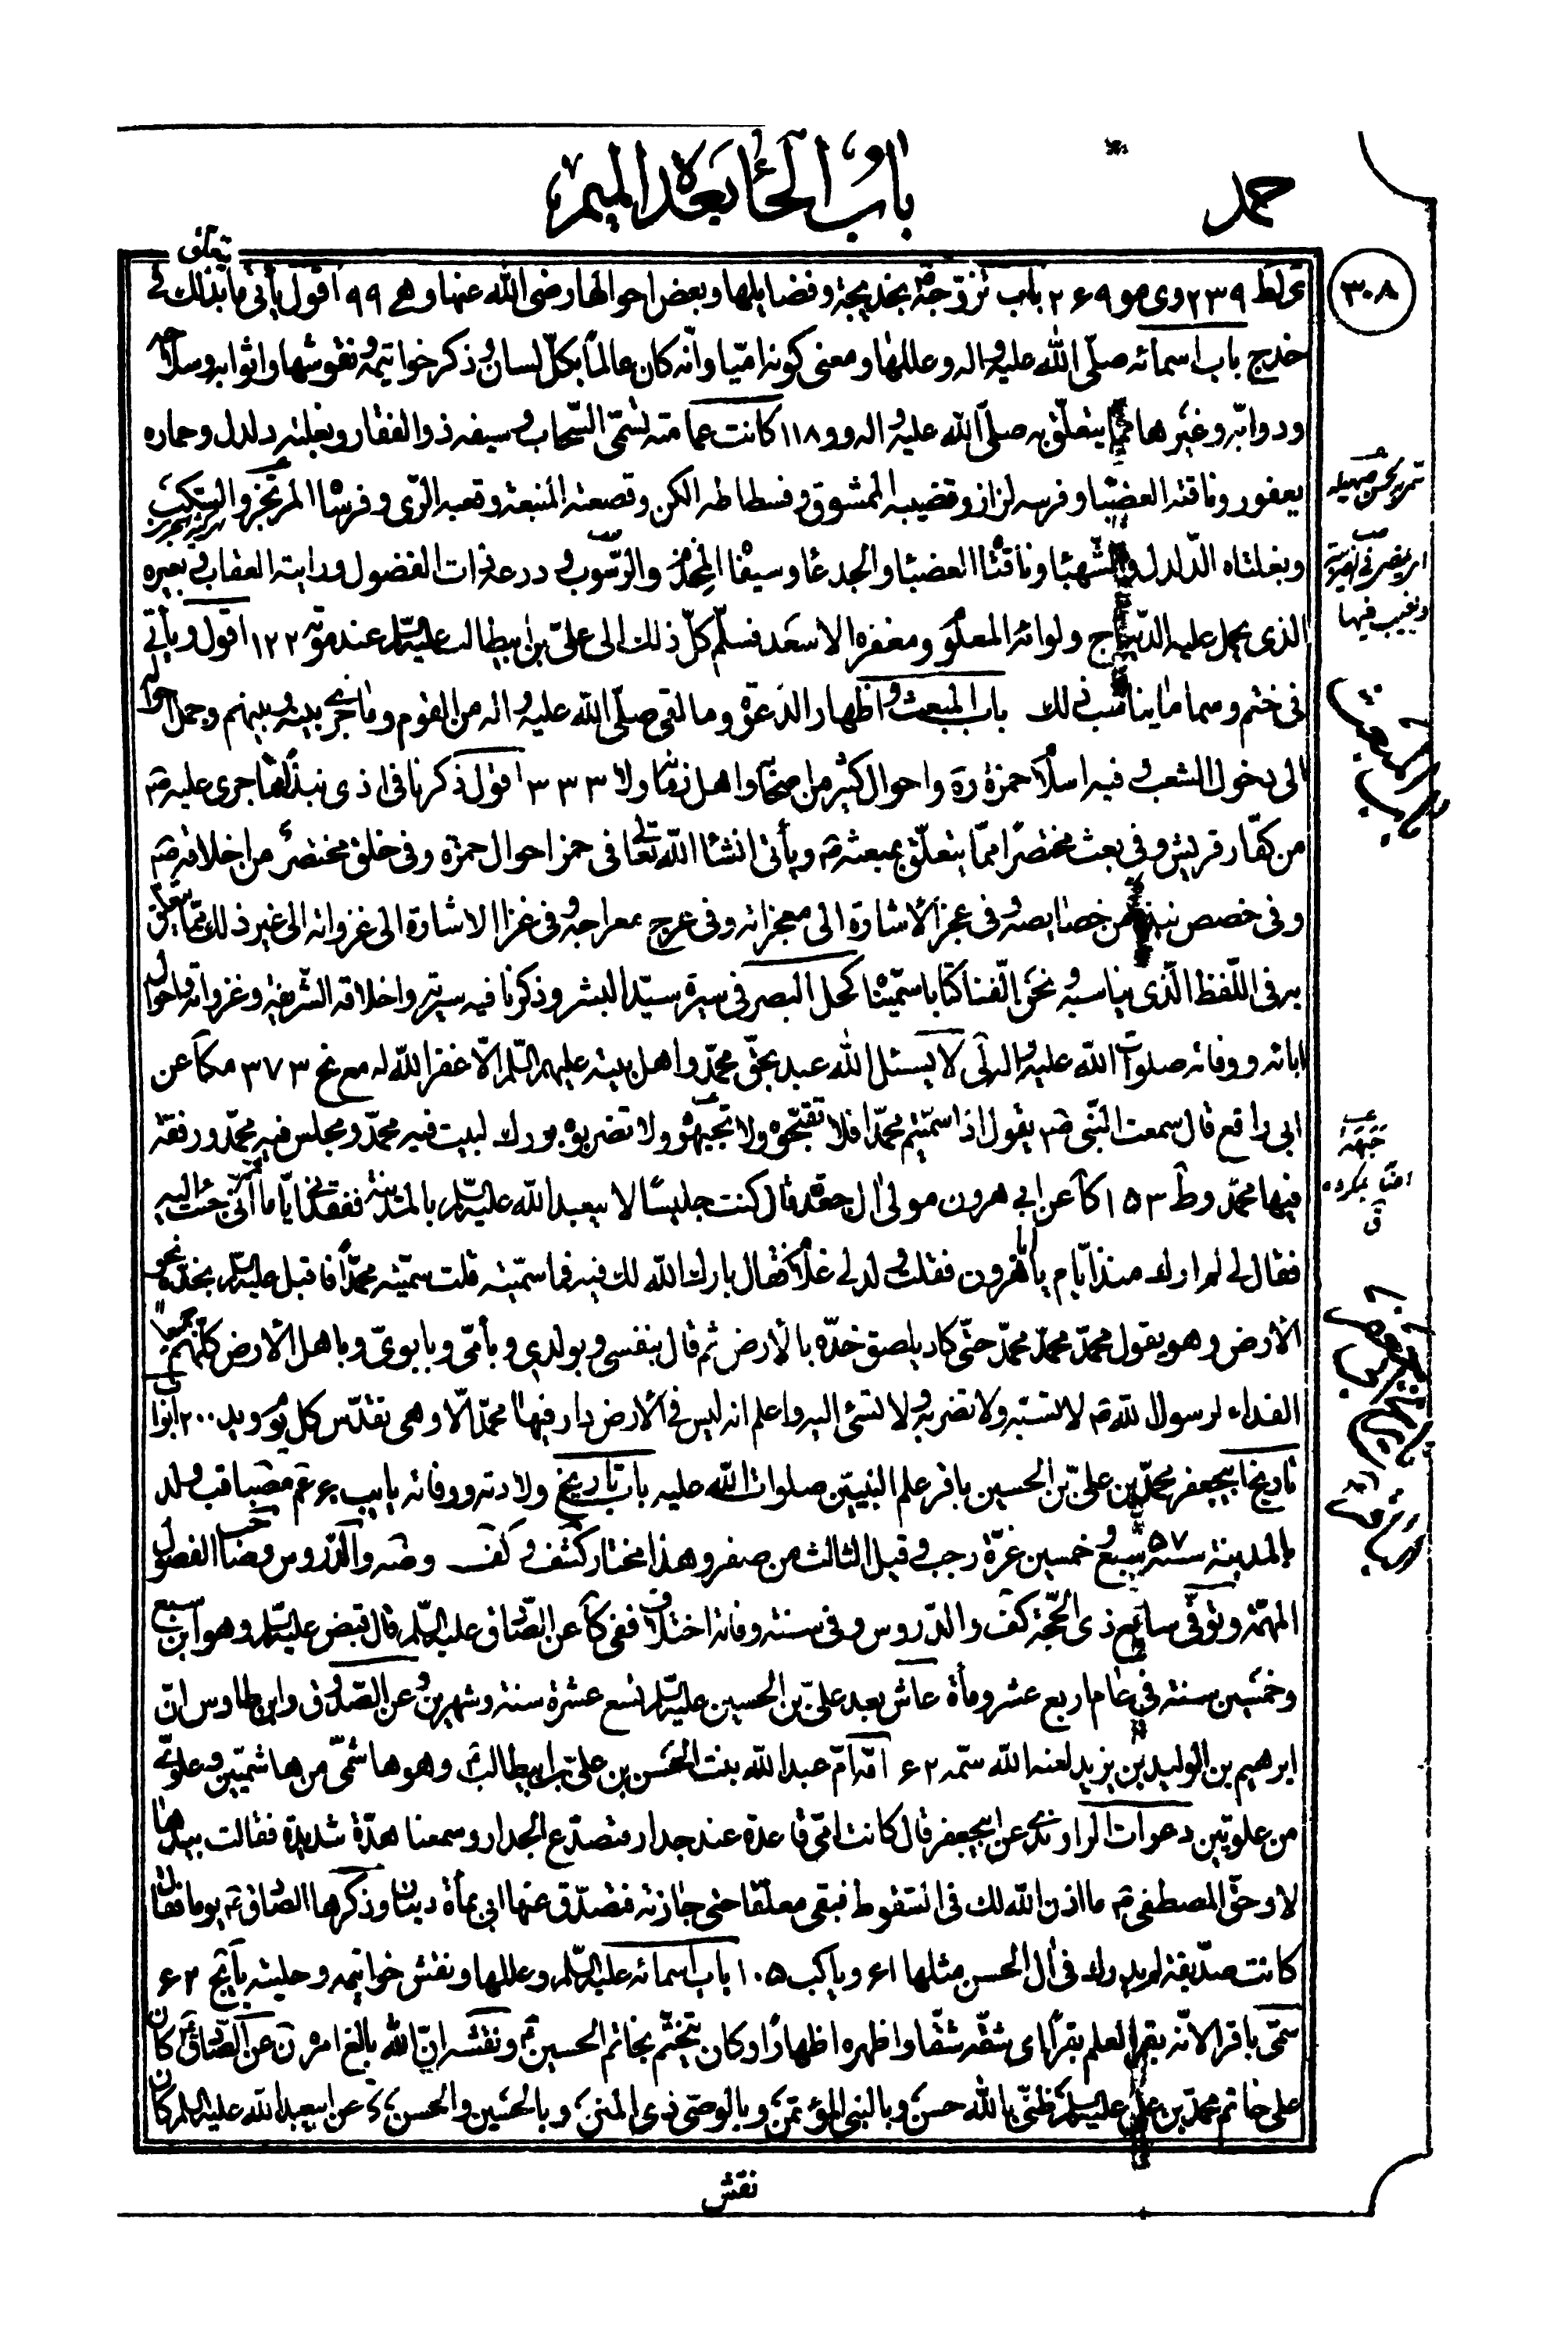 باب الحاء بعده الميم
حمد
٣٠٨
٢٣٩ وى مو ٢٦٩ باب تزوجه بخديجة وفضايلها وبعض احوالها رضى الله عنها وهى ٩٩ اقول يأتى ما يتعلق بذلك فى
خدج باب اسمائه صلّى الله عليه واله وعللها ومعنى كونه امّيا وانّه كان عالماً بكلّ لسان وذكر خواتيمه ونقوشها واثوابه وسلاحه
ودوابّه وغيرها ممّا يتعلّق به صلّى الله عليه واله وو ١١٨ كانت عمامته تسمّى السّحاب وسيفه ذو الفقار وبغلته دلدل وحماره
يعفور وناقته العضباء وفرسه لزاز وقضيبه الممشوق وفسطاطه الكن وقصعته المنبعة وقعبه الرّى وفرساه المرتجز والسّكب
وبغلتاه الدّلدل والشّهباء وناقتاه العضباء والجدعاء وسيفاه المخذم والرّسوب ودرعه ذات الفضول ورايته العقاب وبعيره
الذى يحمل عليه الدّيباج ولوائه المعلوم ومغفره الاسعد فسلّم كلّ ذلك الى علىّ بن ابيطالب عليه السّلم عند موته ١٢٢ اقول ويأتى
فى ختم وسما ما يناسب ذلك باب المبعث واظهار الدّعوة وما لقى صلّى الله عليه واله من القوم وما جرى بينه وبينهم وجمل احواله
الى دخول الشعب وفيه اسلام حمزة ره واحوال كثير من اصحابه واهل زمانه ولا ٣٣٣ اقول ذكرنا فى اذى نبذاً ممّا جرى عليه ص
من كفّار قريش وفى بعث مختصراً ممّا يتعلّق بمبعثه ص ويأتى انشاء الله تعالى فى حمز احوال حمزة وفى خلق مختصر من اخلاقه ص
وفى خصص نبذ من خصايصه وفى عجز الاشارة الى معجزاته وفى عرج معراجه وفى غزا الاشارة الى غزواته الى غير ذلك ممّا يتعلّق
به فى اللّفظ الّذى يناسبه ونحن الّفنا كتابا سمّيناه كحل البصر فى سيرة سيّد البشر وذكرنا فيه سيرته واخلاقه الشّريفة وغزواته واحوال
ابائه ووفاته صلوات الله عليه واله لى لا يسئل الله عبد بحقّ محمّد واهل بيته عليهم السّلم الّا غفر الله له مع نج ٣٧٣ مكا عن
ابى رافع قال سمعت النّبى ص يقول اذا سمّيتم محمّداً فلا تقبّحوه ولا تجبهوه ولا تضربوه بورك لبيت فيه محمّد ومجلس فيه محمّد ورفقة
فيها محمّد وط ١٥٣ كا عن ابى هرون مولى ال جعدة قال كنت جليسًا لابيعبد الله عليه السّلم بالمدينة ففقدنى ايّاما ثمّ انّى جئت اليه
فقال لى لم ارك منذ ايّام يا ابا هرون فقلت ولد لى غلام فقال بارك الله لك فيه فما سمّيته قلت سمّيته محمّداً فاقبل عليه السّلم بخدّه نحو
الارض وهو يقول محمّد محمّد محمّد حتّى كاد يلصق خدّه بالارض ثم قال بنفسى وبولدى وبأمّى وبابوىّ وباهل الارض كلّهم جميعاً
الفداء لرسول الله ص لا تسبّه ولا تضربه ولا تسئ اليه واعلم انه ليس فى الارض دار فيها محمّد الّا وهى تقدّس كل يوم ويد ٢٠٠ ابواب
تاريخ ابيجعفر محمّد بن علىّ بن الحسين باقر علم النبيّين صلوات الله عليه باب تاريخ ولادته ووفاته يا يب ٦٠ عم مصبا قب ولد
بالمدينة سنة ٥٧ سبع وخمسين غرّة رجب وقيل الثالث من صفر وهذا مختار كشف وكف وضه والدّروس وصاحب الفصول
المهمّة وتوفّى سابع ذى الحجّة كف والدّروس وفى سنته وفاته اختلاف ففى كا عن الصّادق عليه السّلم قال قبض عليه السّلم وهو ابن سبع
وخمسين سنة فى عام اربع عشر ومأة عاش بعد علىّ بن الحسين عليه السّلم تسع عشرة سنة وشهرين وعن الصّدوق وابن طاوس انّ
ابرهيم بن الوليد بن يزيد لعنه الله سمّه ٦٢ امّه امّ عبد الله بنت الحسن بن علىّ بن ابيطالب وهو هاشمّى من هاشميّين وعلوىّ
من علويّين دعوات الراوندى عن ابيجعفر قال كانت امّى قاعدة عند جدار فتصدّع الجدار وسمعنا هدّة شديدة فقالت بيدها
لا وحقّ المصطفى ص ما اذن الله لك فى السّقوط فبقى معلّقا حتى جازته فتصدّق عنها ابى بمأة دينار وذكرها الصّادق ع يوما فقال
كانت صدّيقة لم يدرك فى ال الحسن مثلها ٦١ ويا كب ١٠٥ باب اسمائه عليه السّلم وعللها ونقش خواتيمه وحليته يا يج ٦٢
سمّى باقرا لانّه بقر العلم بقراً اى شقّه شقّا واظهره اظهاراً وكان يتختّم بخاتم الحسين ع ونقشه انّ الله بالغ امره ن عن الصّادق ع كان
على خاتم محمّد بن على عليه السّلم ظنّى بالله حسن وبالنبى المؤتمن وبالوصى ذى المنن وبالحسين والحسن عن ابيعبد الله عليه السّلم كان
نقش